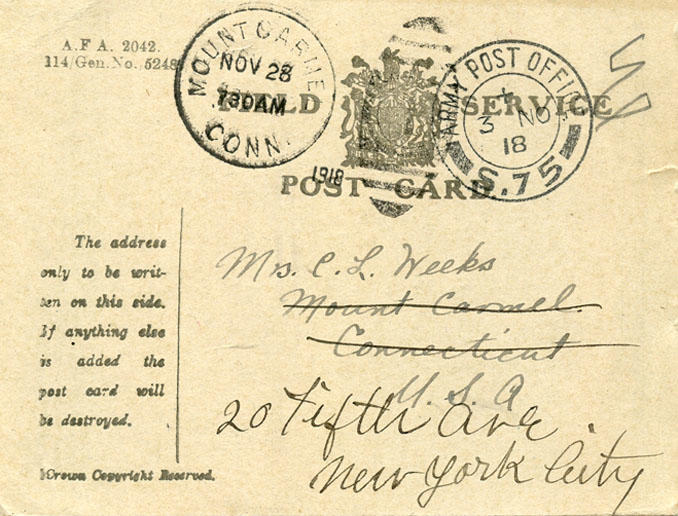 A.F.A. 2042.
114/Gen. No. 5248
MOUNT CARMEL
NOV 28
730AM
CONN.
1918
FIELD SERVICE
POST CARD.
ARMY POST OFFICE
3 NO
18
S.75
The address
only to be writ-
ten on this side.
If anything else
is added the
post card will
be destroyed.
Crown Copyright Reserved.
Mrs. C. L. Weeks
Mount Carmel.
Connecticut
U.S.A
20 Fifth Ave.
New York City